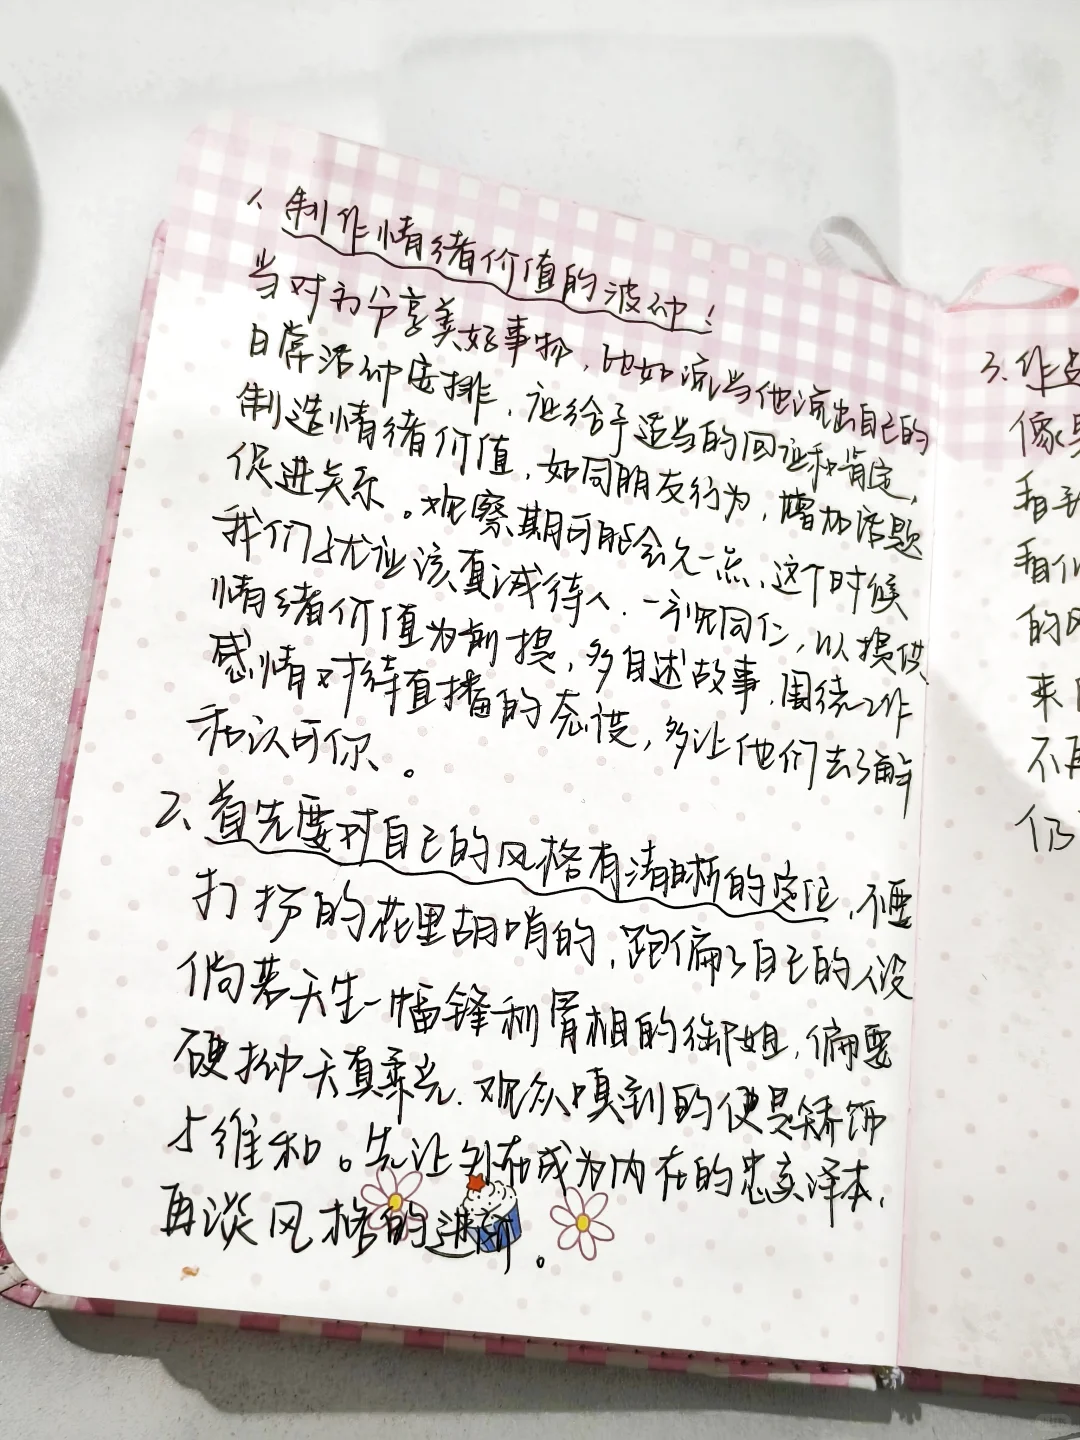 1、制作情绪价值的波动!
当对方分享美好事物,比如流当他流出自己的
日常活动安排,应给予适当的回应和肯定,
制造情绪价值,如同朋友行为,增加话题
促进关系。观察期可能会久一点、这个时候
我们就应该真诚待人.一视同仁,以提供
情绪价值为前提,多自述故事,围绕工作
感情对待直播的态度,多让他们去了解
和认可你、。
2、首先要对自己的风格有清晰的定位,不要
打扮的花里胡哨的,跑偏了自己的人设
倘若天生一幅锋利骨相的御姐,偏要
硬拗天真乖,观众嗅到的便是矫饰
与维和。先让外在成为内在的忠实译本,
再谈风格的进阶。
3、作
像
和
和
的风
来
不再
仍